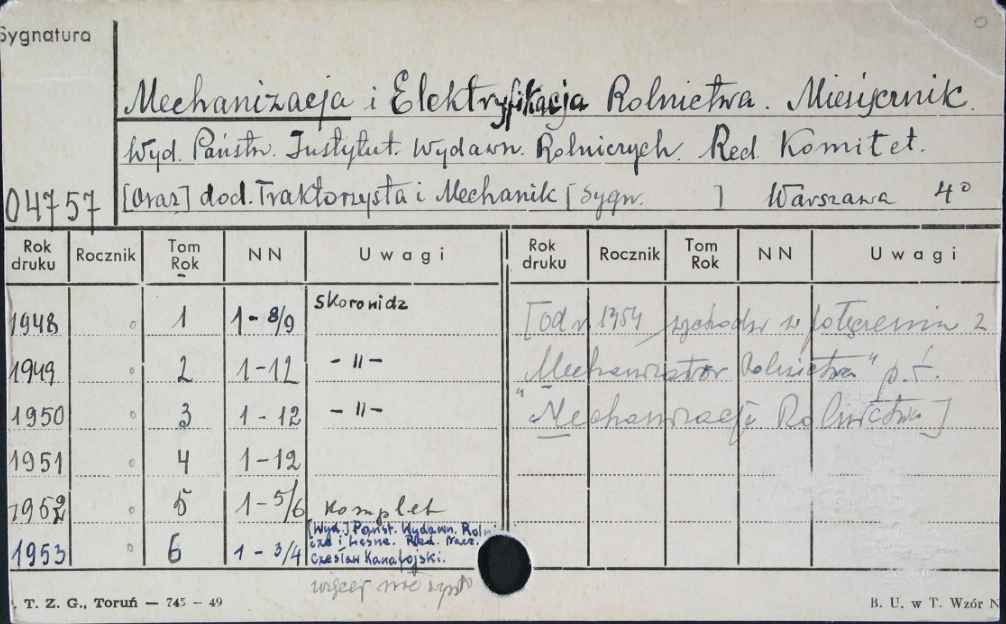 Sygnatura
Mechanizacja i Elektryfikacja Rolnictwa. Miesięcznik.
Wyd. Państw. Instytut. Wydawn. Rolniczych. Red. Komitet.
04757
[Oraz] dod. Traktorzysta i Mechanik [Sygn. ] Warszawa 4°
Rok druku Rocznik Tom Rok NN Uwagi Rok druku Rocznik Tom Rok NN Uwagi
1948 1 1-8/9 Skorowidz
[od r. 1954 wychodzi w połączeniu z
1949 2 1-12 -"-
Mechanizator Rolnictwa" p.t.
1950 3 1-12 -"-
"Mechanizacja Rolnictwa]
1951 4 1-12
1952 5 1-5/6 Komplet
[Wyd.] Państ. Wydawn. Rolni
cze i Leśne. Red. Nacz.
1953 6 1-3/4 Czesław Kanafojski.
więcej nie
T. Z. G., Toruń — 745 — 49
B. U. w T. Wzór N